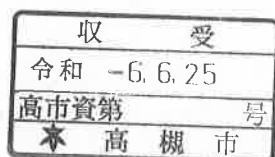 収受
令和 -6.6.25
高市資第 号
高槻市